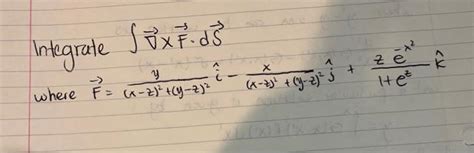 Integrate ∫ ∇⃗ x F⃗ · dS⃗
where F⃗ = y/((x-z)² + (y-z)²) î - x/((x-z)² + (y-z)²) ĵ + (z e^(-x²))/(1+e^z) k̂